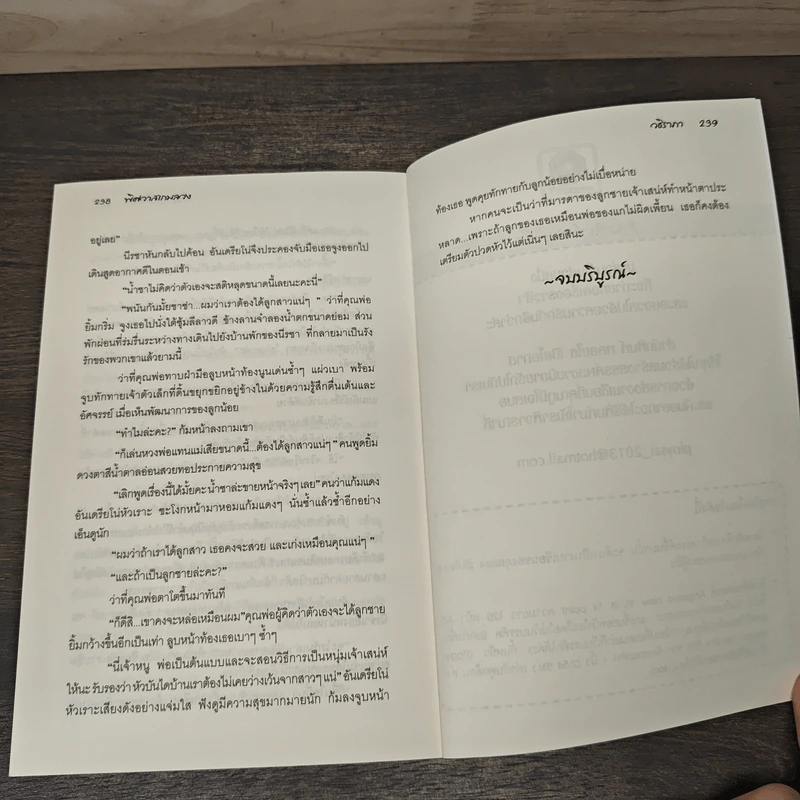 238 พิศวาสกามลวง
อยู่เลย”
นีรชาหันกลับไปค้อน อันเดรียโน่จึงประคองจับมือเธอจูงออกไป
เดินสูดอากาศดีในตอนเช้า
“น้ำชาไม่คิดว่าตัวเองจะสติหลุดขนาดนี้เลยนะคะนี่”
“พนันกันมั้ยชาช่า...ผมว่าเราต้องได้ลูกสาวแน่ๆ ” ว่าที่คุณพ่อ
ยิ้มกริ่ม จูงเธอไปนั่งใต้ซุ้มลีลาวดี ข้างลานจำลองน้ำตกขนาดย่อม ส่วน
พักผ่อนที่ร่มรื่นระหว่างทางเดินไปยังบ้านพักของนีรชา ที่กลายมาเป็นรัง
รักของพวกเขาแล้วยามนี้
ว่าที่คุณพ่อทาบฝ่ามือลูบหน้าท้องนูนเด่นซ้ำๆ แผ่วเบา พร้อม
จูบทักทายเจ้าตัวเล็กที่ดิ้นขยุกขยิกอยู่ข้างในด้วยความรู้สึกตื่นเต้นและ
อัศจรรย์ เมื่อเห็นพัฒนาการของลูกน้อย
“ทำไมล่ะคะ?” ก้มหน้าลงถามเขา
“ก็เล่นหวงพ่อแทนแม่เสียขนาดนี้...ต้องได้ลูกสาวแน่ๆ” คนพูดยิ้ม
ดวงตาสีน้ำตาลอ่อนสวยทอประกายความสุข
“เลิกพูดเรื่องนี้ได้มั้ยคะ น้ำชาล่ะขายหน้าจริงๆ เลย” คนว่าแก้มแดง
อันเดรียโน่หัวเราะ ชะโงกหน้ามาหอมแก้มแดงๆ นั่นซ้ำแล้วซ้ำอีกอย่าง
เอ็นดูนัก
“ผมว่าถ้าเราได้ลูกสาว เธอคงจะสวย และเก่งเหมือนคุณแน่ๆ ”
“และถ้าเป็นลูกชายล่ะคะ?”
ว่าที่คุณพ่อตาโตขึ้นมาทันที
“ก็ดีสิ...เขาคงจะหล่อเหมือนผม”คุณพ่อผู้คิดว่าตัวเองจะได้ลูกชาย
ยิ้มกว้างขึ้นอีกเป็นเท่า ลูบหน้าท้องเธอเบาๆ ซ้ำๆ
“นี่เจ้าหนู พ่อเป็นต้นแบบและจะสอนวิธีการเป็นหนุ่มเจ้าเสน่ห์
ให้นะ รับรองว่า หัวบันไดบ้านเราต้องไม่เคยว่างเว้นจากสาวๆ แน่” อันเดรียโน่
หัวเราะเสียงดังอย่างแจ่มใส ฟังดูมีความสุขมากมายนัก ก้มลงจูบหน้า
วธิราภา 239
ท้องเธอ พูดคุยทักทายกับลูกน้อยอย่างไม่เบื่อหน่าย
หากคนจะเป็นว่าที่มารดาของลูกชายเจ้าเสน่ห์ทำหน้าตาประ
หลาด...เพราะถ้าลูกของเธอเหมือนพ่อของแกไม่ผิดเพี้ยน เธอก็คงต้อง
เตรียมตัวปวดหัวไว้แต่เนิ่นๆ เลยสินะ
~จบบริบูรณ์~